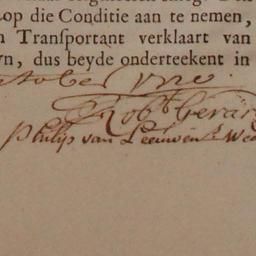 op die Conditie aan te nemen,
Transportant verklaart van
dus beyde onderteekent in
Rob.t Gerar
Philip van Leeuwen